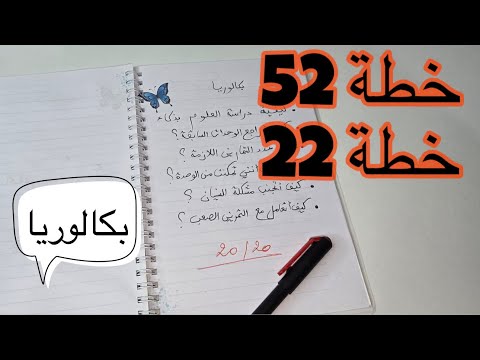 خطة 52
خطة 22
بكالوريا
بكالوريا
• كيفية دراسة العلوم بذكاء
اجع الوحدات السابقة ؟
دد التمارين اللازمة ؟
تمكنت من الوحدة ؟
• كيف أتجنب مشكلة النسيان ؟
• كيف أتعامل مع التمرين الصعب ؟
20/20